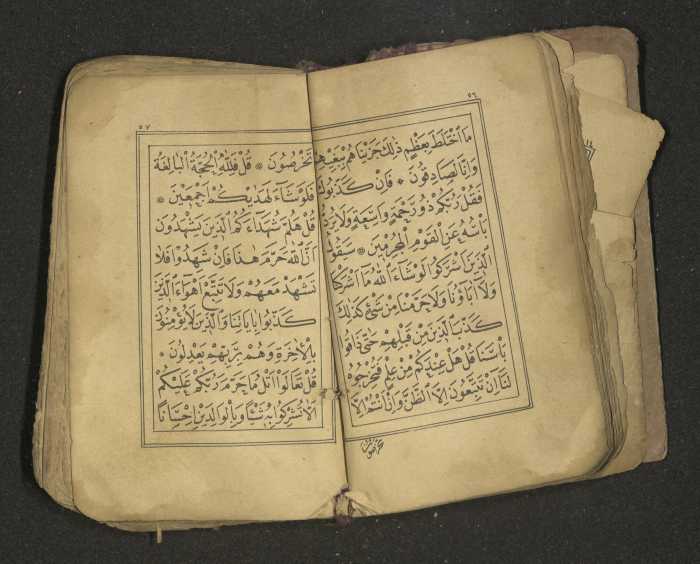 ٥٦
مَا اخْتَلَطَ بِعَظْمٍ ذٰلِكَ جَزَيْنَاهُمْ بِبَغْيِهِمْ
وَإِنَّا لَصَادِقُونَ * فَإِنْ كَذَّبُوكَ
فَقُلْ رَبُّكُمْ ذُو رَحْمَةٍ وَاسِعَةٍ وَلَا يُرَدُّ
بَأْسُهُ عَنِ الْقَوْمِ الْمُجْرِمِينَ * سَيَقُولُ
الَّذِينَ أَشْرَكُوا لَوْ شَاءَ اللّٰهُ مَا أَشْرَكْنَا
وَلَا آبَاؤُنَا وَلَا حَرَّمْنَا مِنْ شَيْءٍ كَذٰلِكَ
كَذَّبَ الَّذِينَ مِنْ قَبْلِهِمْ حَتَّى ذَاقُوا
بَأْسَنَا قُلْ هَلْ عِنْدَكُمْ مِنْ عِلْمٍ فَتُخْرِجُوهُ
لَنَا إِنْ تَتَّبِعُونَ إِلَّا الظَّنَّ وَإِنْ أَنْتُمْ إِلَّا
٥٧
تَخْرُصُونَ * قُلْ فَلِلّٰهِ الْحُجَّةُ الْبَالِغَةُ
فَلَوْ شَاءَ لَهَدٰيكُمْ أَجْمَعِينَ *
قُلْ هَلُمَّ شُهَدَاءَكُمُ الَّذِينَ يَشْهَدُونَ
أَنَّ اللّٰهَ حَرَّمَ هٰذَا فَإِنْ شَهِدُوا فَلَا
تَشْهَدْ مَعَهُمْ وَلَا تَتَّبِعْ أَهْوَاءَ الَّذِينَ
كَذَّبُوا بِآيَاتِنَا وَالَّذِينَ لَا يُؤْمِنُونَ
بِالْآخِرَةِ وَهُمْ بِرَبِّهِمْ يَعْدِلُونَ *
قُلْ تَعَالَوْا أَتْلُ مَا حَرَّمَ رَبُّكُمْ عَلَيْكُمْ
أَلَّا تُشْرِكُوا بِهِ شَيْئًا وَبِالْوَالِدَيْنِ إِحْسَانًا